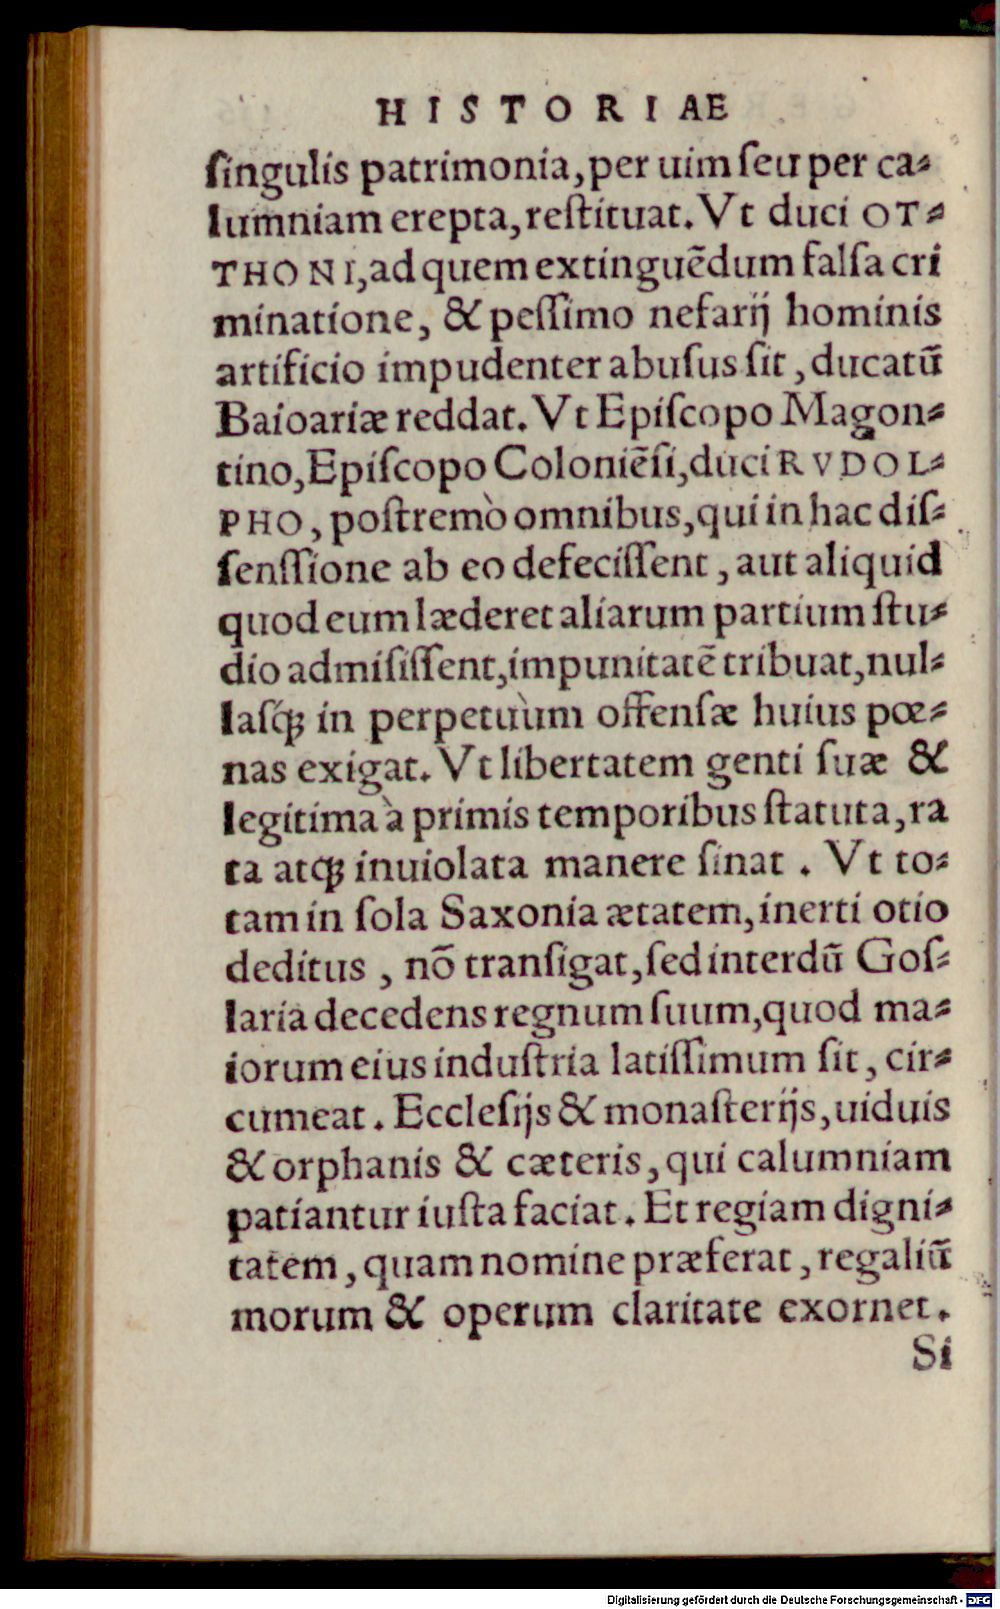 HISTORIAE
ſingulis patrimonia, per uim ſeu per ca-
lumniam erepta, reſtituat. Vt duci OT-
THONI, ad quem extinguēdum falſa cri
minatione, & peſſimo nefarij hominis
artificio impudenter abuſus ſit, ducatū
Baioariæ reddat. Vt Epiſcopo Magon-
tino, Epiſcopo Coloniēſi, duci RVDOL-
PHO, poſtremò omnibus, qui in hac diſ-
ſenſſione ab eo defeciſſent, aut aliquid
quod eum læderet aliarum partium ſtu-
dio admiſiſſent, impunitatē tribuat, nul-
laſq́ꝫ in perpetuùm offenſæ huius pœ-
nas exigat. Vt libertatem genti ſuæ &
legitima à primis temporibus ſtatuta, ra
ta atqꝫ inuiolata manere ſinat. Vt to-
tam in ſola Saxonia ætatem, inerti otio
deditus, nō tranſigat, ſed interdū Goſ-
laria decedens regnum ſuum, quod ma-
iorum eius induſtria latiſſimum ſit, cir-
cumeat. Eccleſijs & monaſterijs, uiduis
& orphanis & cæteris, qui calumniam
patiantur iuſta faciat. Et regiam digni-
tatem, quam nomine præferat, regaliū
morum & operum claritate exornet.
Si
Digitalisierung gefördert durch die Deutsche Forschungsgemeinschaft - DFG